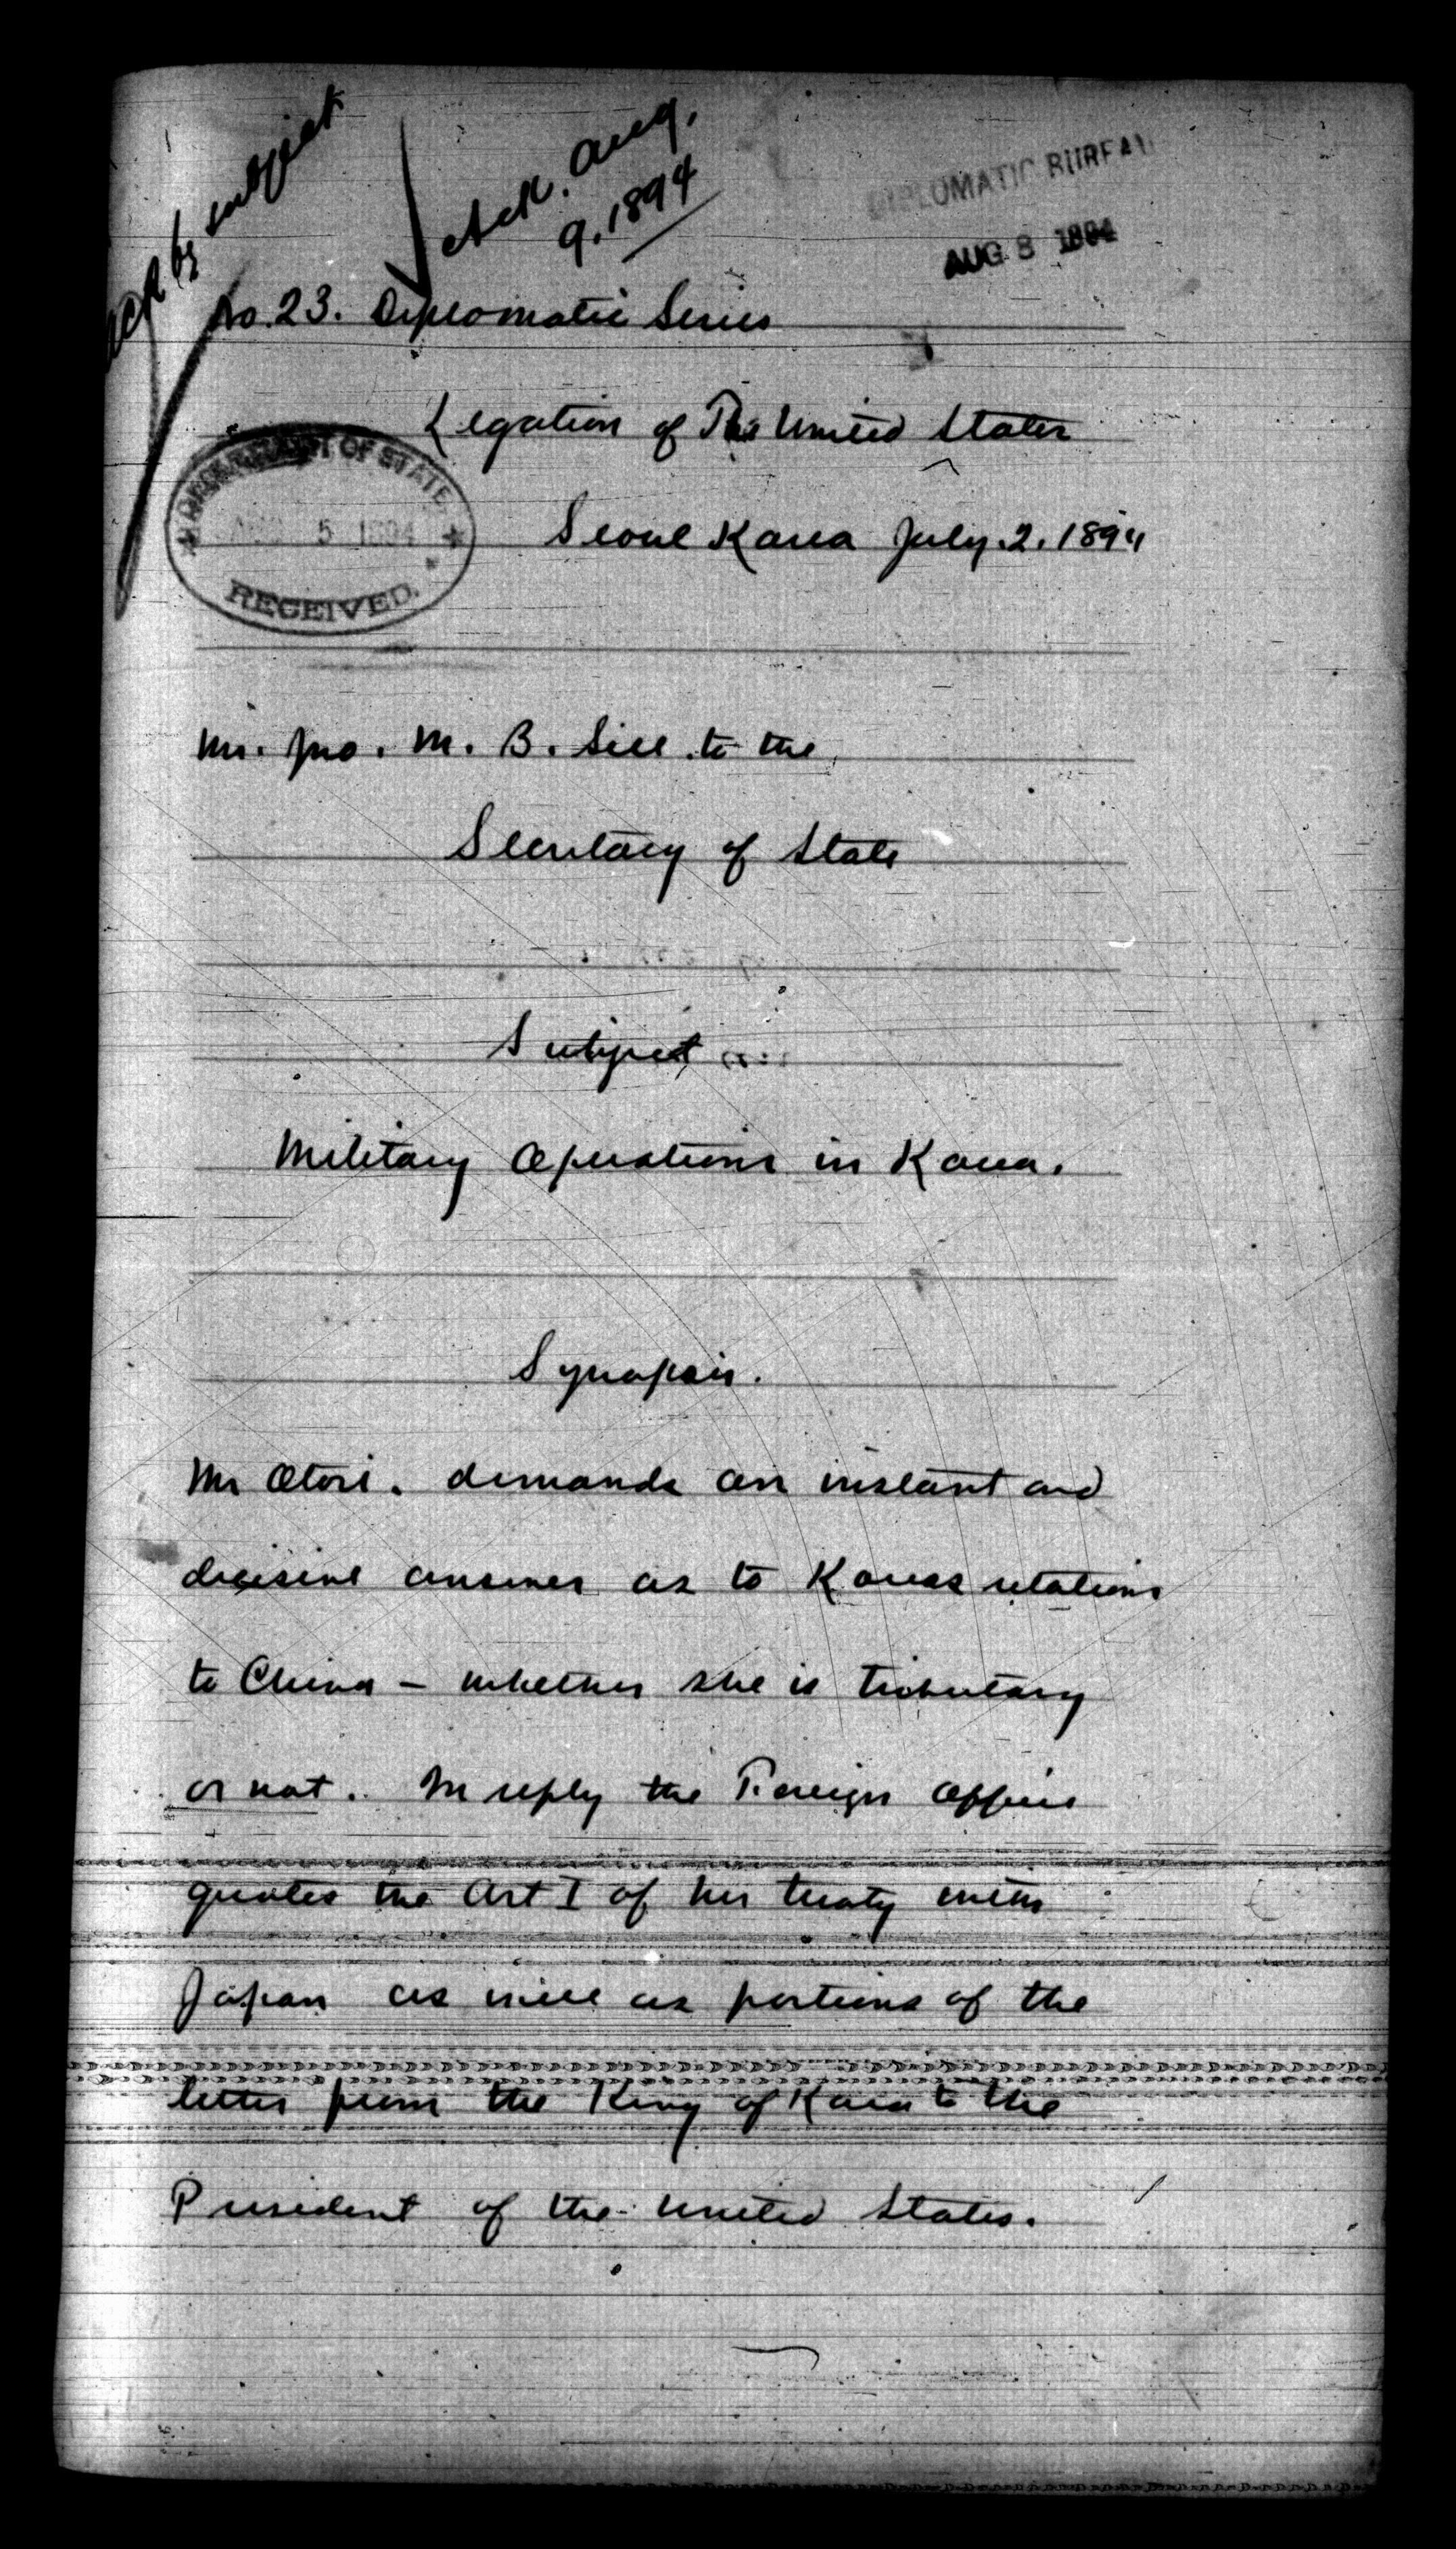 by subject
Ack. Aug.
9. 1894
DIPLOMATIC BUREAU
AUG 8 1894
No. 23. Diplomatic Series
Legation of The United States
DEPARTMENT OF STATE
5 1894
RECEIVED.
Seoul Korea July. 2. 1894
Mr. Jno. M. B. Sill to the
Secretary of State
Subject
Military Operations in Korea.
Synopsis.
Mr Otori. demands an instant and
decisive answer as to Koreas relations
to China - whether she is tributary
or not. In reply the Foreign Office
quotes the Art I of her treaty with
Japan as well as portions of the
letter from the King of Korea to the
President of the United States.